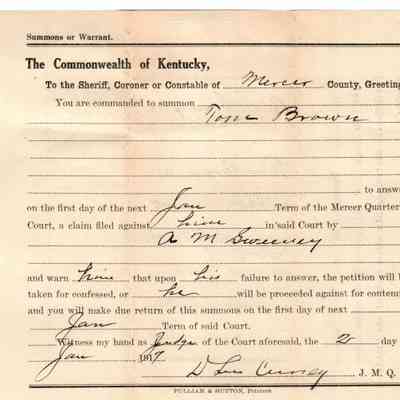 Summons or Warrant.
The Commonwealth of Kentucky,
To the Sheriff, Coroner or Constable of Mercer County, Greeting
You are commanded to summon
Tom Brown
to answ
on the first day of the next Jan Term of the Mercer Quarter
Court, a claim filed against him in said Court by
A M Sweeney
and warn him that upon his failure to answer, the petition will b
taken for confessed, or he will be proceeded against for contem
and you will make due return of this summons on the first day of next
Jan Term of said Court.
Witness my hand as Judge of the Court aforesaid, the 2 day
Jan 1917
J. M. Q.
PULLIAM & HUTTON, Printers